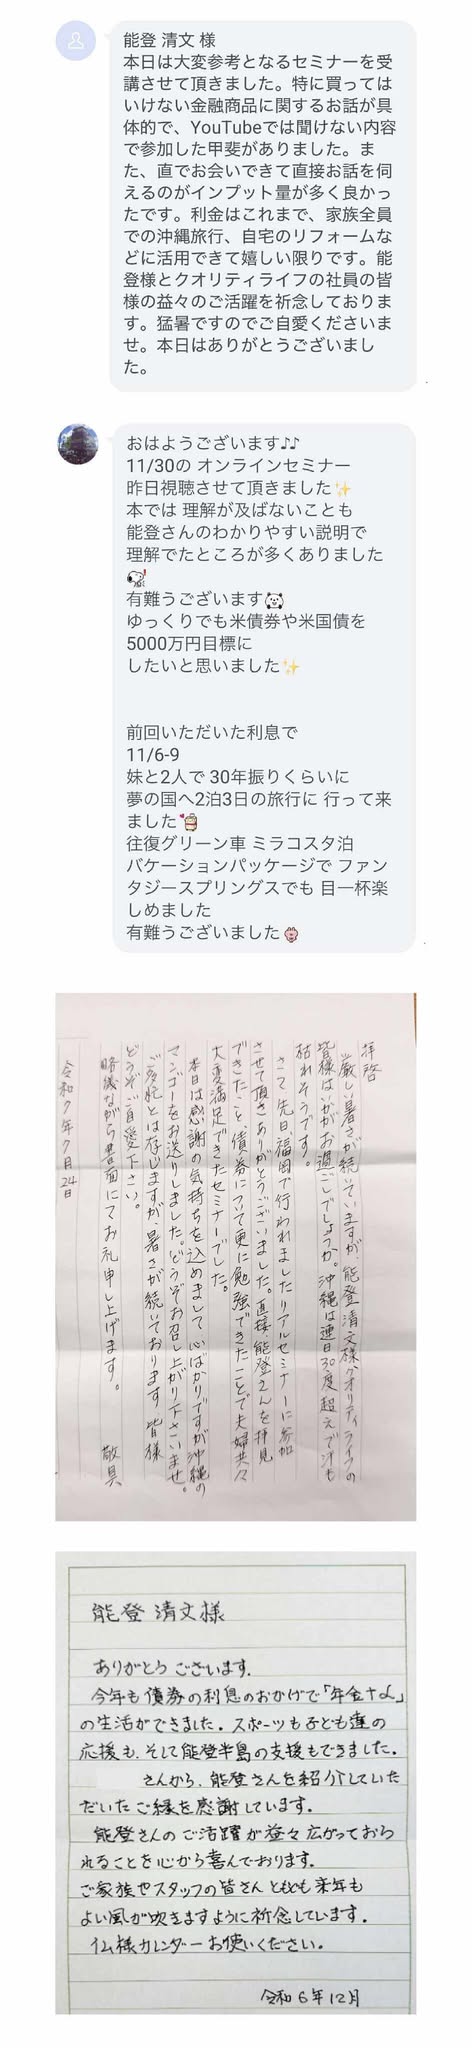 能登 清文 様
本日は大変参考となるセミナーを受
講させて頂きました。特に買っては
いけない金融商品に関するお話が具
体的で、YouTubeでは聞けない内容
で参加した甲斐がありました。ま
た、直でお会いできて直接お話を伺
えるのがインプット量が多く良かっ
たです。利金はこれまで、家族全員
での沖縄旅行、自宅のリフォームな
どに活用できて嬉しい限りです。能
登様とクオリティライフの社員の皆
様の益々のご活躍を祈念しておりま
す。猛暑ですのでご自愛くださいま
せ。本日はありがとうございまし
た。
おはようございます♪♪
11/30の オンラインセミナー
昨日視聴させて頂きました✨
本では 理解が及ばないことも
能登さんのわかりやすい説明で
理解でたところが多くありました
有難うございます
ゆっくりでも米債券や米国債を
5000万円目標に
したいと思いました✨
前回いただいた利息で
11/6-9
妹と2人で 30年振りくらいに
夢の国へ2泊3日の旅行に 行って来
ました
往復グリーン車 ミラコスタ泊
バケーションパッケージで ファン
タジースプリングスでも 目一杯楽
しめました
有難うございました
拝啓
厳しい暑さが続いていますが、能登清文様、クオリティライフの
皆様はいかがお過ごしでしょうか。沖縄は連日30度超えで汁も
枯れそうです。
さて、先日、福岡で行われましたリアルセミナーに参加
させて頂きありがとうございました。直接、能登さんを拝見
できたこと、債券について更に勉強できたことで夫婦共々
大変満足できたセミナーでした。
本日は感謝の気持ちを込めまして心ばかりですが沖縄の
マンゴーをお送りしました。どうぞお召し上がり下さいませ。
ご多忙とは存じますが、暑さが続いております 皆様
どうぞご自愛下さい。
略儀ながら書面にてお礼申し上げます。
敬具
令和7年7月24日
能登 清文様
ありがとうございます。
今年も債券の利息のおかげで「年金+α」
の生活ができました。スポーツも子ども達の
応援も、そして能登半島の支援もできました。
さんから、能登さんを紹介していた
だいたご縁を感謝しています。
能登さんのご活躍が益々広がっておら
れることを心から喜んでおります。
ご家族やスタッフの皆さんともども来年も
よい風が吹きますように祈念しています。
仏様カレンダーお使いください。
令和6年12月